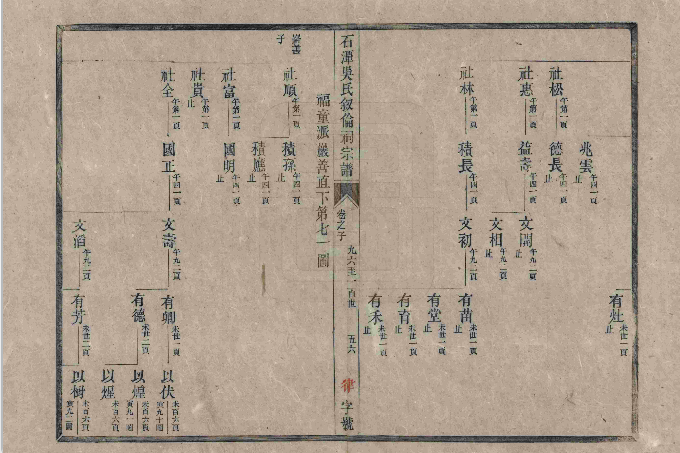 兆雲止
社松午第一頁
德長午四一頁止
社惠午第一頁
益壽午四一頁
文開午九二頁止
文相午九二頁止
有灶未世一頁止
社林午第一頁
積長午四一頁
文初午九二頁
有苗未世一頁止
有堂未世一頁止
有育未世一頁止
有禾未世一頁止
石潭吳氏敘倫祠宗譜
卷之子
九六至一百世
五六
律字號
福童派嚴善直下第七一圖
嚴善子
社順午第一頁
積孫午四一頁止
積應午四一頁止
社富午第一頁
國明午四一頁止
社貴午第一頁止
社全午第一頁
國正午四一頁
文壽午九二頁
有卿未世一頁
以伏未百六頁寅九十圖
以煌未百六頁寅九一圖
有德未世二頁
以煋未百六頁
文滔午九二頁
有芳未世二頁
以樹未百六頁寅九二圖